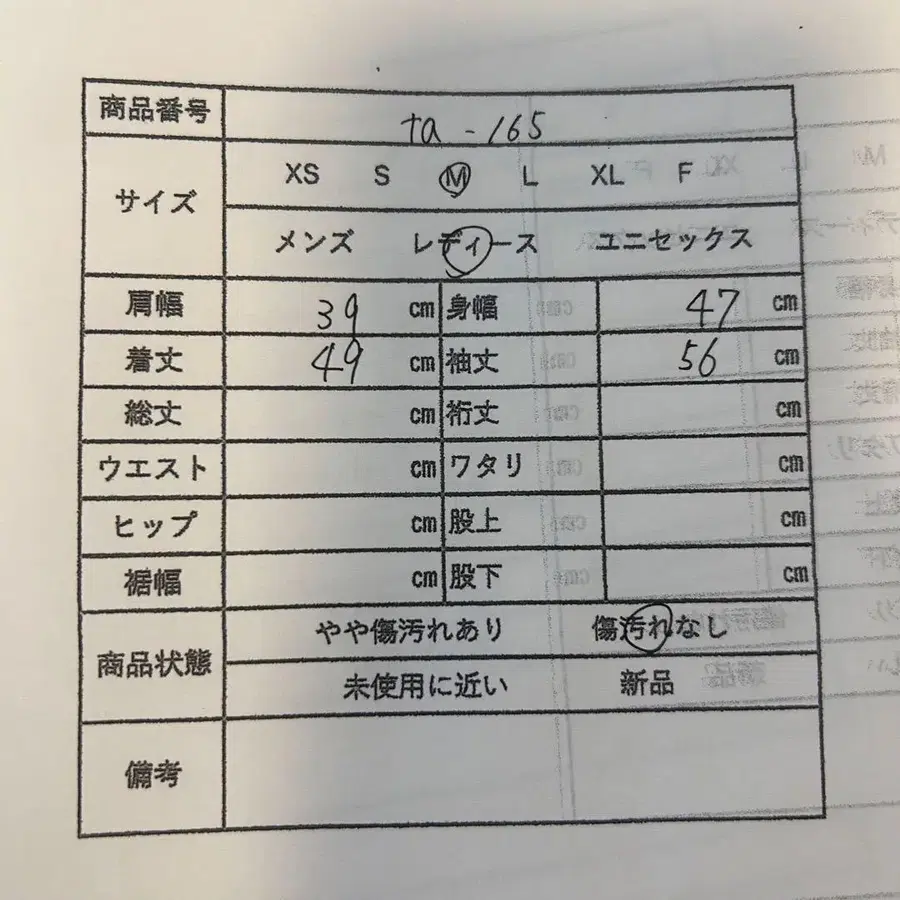 商品番号 ta-165
サイズ XS S M L XL F
メンズ レディース ユニセックス
肩幅 39 cm 身幅 47 cm
着丈 49 cm 袖丈 56 cm
総丈 cm 裄丈 cm
ウエスト cm ワタリ cm
ヒップ cm 股上 cm
裾幅 cm 股下 cm
商品状態 やや傷汚れあり 傷汚れなし
未使用に近い 新品
備考